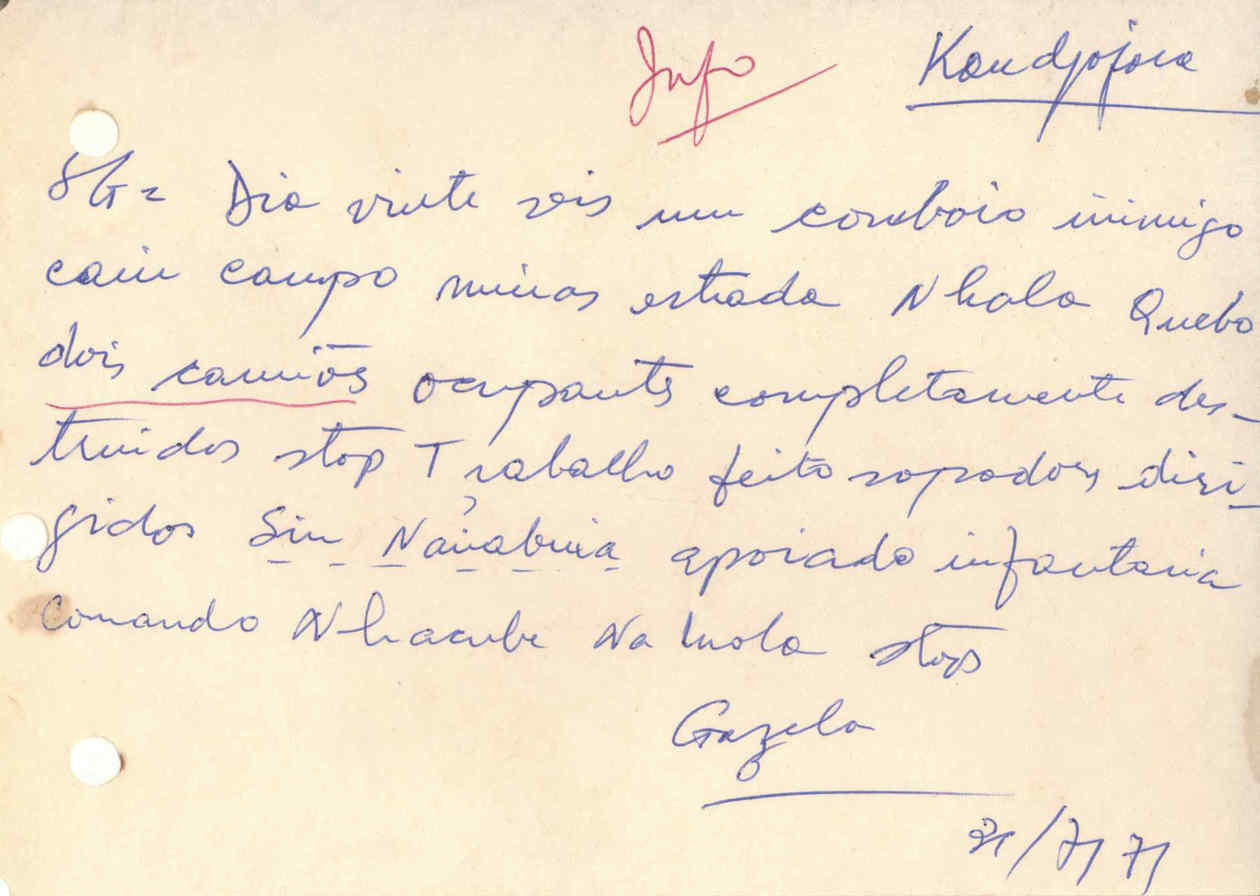 Info
Kandjafara
SG= Dia vinte seis um comboio inimigo
caiu campo minas estrada Nhala Quebo
dois camiōs ocupantes completamente des-
truidos stop Trabalho feito sapadores diri-
gidos Sin Nanabuia apoiado infantaria
comando Nhacube Na
stop
Gazela
31/7/71